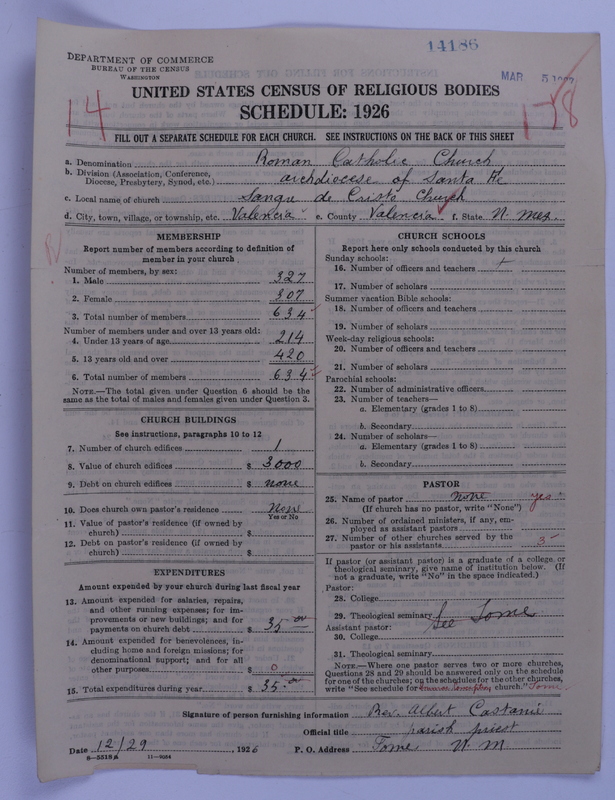 14186
DEPARTMENT OF COMMERCE
BUREAU OF THE CENSUS
WASHINGTON
MAR 5
UNITED STATES CENSUS OF RELIGIOUS BODIES
SCHEDULE: 1926
14
1-78
FILL OUT A SEPARATE SCHEDULE FOR EACH CHURCH. SEE INSTRUCTIONS ON THE BACK OF THIS SHEET
a. Denomination Roman Catholic Church
b. Division (Association, Conference,
Diocese, Presbytery, Synod, etc.) archdiocese of Santa Fe
c. Local name of church Sangre de Cristo Church
d. City, town, village, or township, etc. Valencia e. County Valencia f. State N. Mex.
MEMBERSHIP
Report number of members according to definition of
member in your church
Number of members, by sex:
1. Male 327
2. Female 307
3. Total number of members 634
Number of members under and over 13 years old:
4. Under 13 years of age 214
5. 13 years old and over 420
6. Total number of members 634
NOTE.—The total given under Question 6 should be the
same as the total of males and females given under Question 3.
CHURCH BUILDINGS
See instructions, paragraphs 10 to 12
7. Number of church edifices 1
8. Value of church edifices $ 3000
9. Debt on church edifices $ none
10. Does church own pastor's residence None
Yes or No
11. Value of pastor's residence (if owned by
church) $
12. Debt on pastor's residence (if owned by
church) $
EXPENDITURES
Amount expended by your church during last fiscal year
13. Amount expended for salaries, repairs,
and other running expenses; for im-
provements or new buildings; and for
payments on church debt $ 35.00
14. Amount expended for benevolences, in-
cluding home and foreign missions; for
denominational support; and for all
other purposes $ 0
15. Total expenditures during year $ 35.00
CHURCH SCHOOLS
Report here only schools conducted by this church
Sunday schools:
16. Number of officers and teachers
17. Number of scholars
Summer vacation Bible schools:
18. Number of officers and teachers
19. Number of scholars
Week-day religious schools:
20. Number of officers and teachers
21. Number of scholars
Parochial schools:
22. Number of administrative officers
23. Number of teachers—
a. Elementary (grades 1 to 8)
b. Secondary
24. Number of scholars—
a. Elementary (grades 1 to 8)
b. Secondary
PASTOR
25. Name of pastor None yes
(If church has no pastor, write "None")
26. Number of ordained ministers, if any, em-
ployed as assistant pastors
27. Number of other churches served by the
pastor or his assistants 5
If pastor (or assistant pastor) is a graduate of a college or
theological seminary, give name of institution below. (If
not a graduate, write "No" in the space indicated.)
Pastor:
28. College
29. Theological seminary See Tome
Assistant pastor:
30. College
31. Theological seminary
NOTE.—Where one pastor serves two or more churches,
Questions 28 and 29 should be answered only on the schedule
for one of the churches; on the schedules for the other churches,
write "See schedule for church." Tome
Signature of person furnishing information Rev. Albert Castanie
Official title parish priest
Date 12/29, 1926 P. O. Address Tome N. M.
8-5518a 11-9084